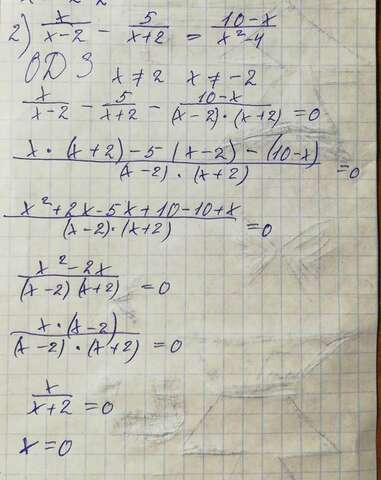 2) x/(x-2) - 5/(x+2) = (10-x)/(x²-4)
ОДЗ x ≠ 2 x ≠ -2
x/(x-2) - 5/(x+2) - (10-x)/((x-2)·(x+2)) = 0
(x·(x+2)-5(x-2)-(10-x))/((x-2)·(x+2)) = 0
(x²+2x-5x+10-10+x)/((x-2)·(x+2)) = 0
(x²-2x)/((x-2)(x+2)) = 0
(x·(x-2))/((x-2)·(x+2)) = 0
x/(x+2) = 0
x=0